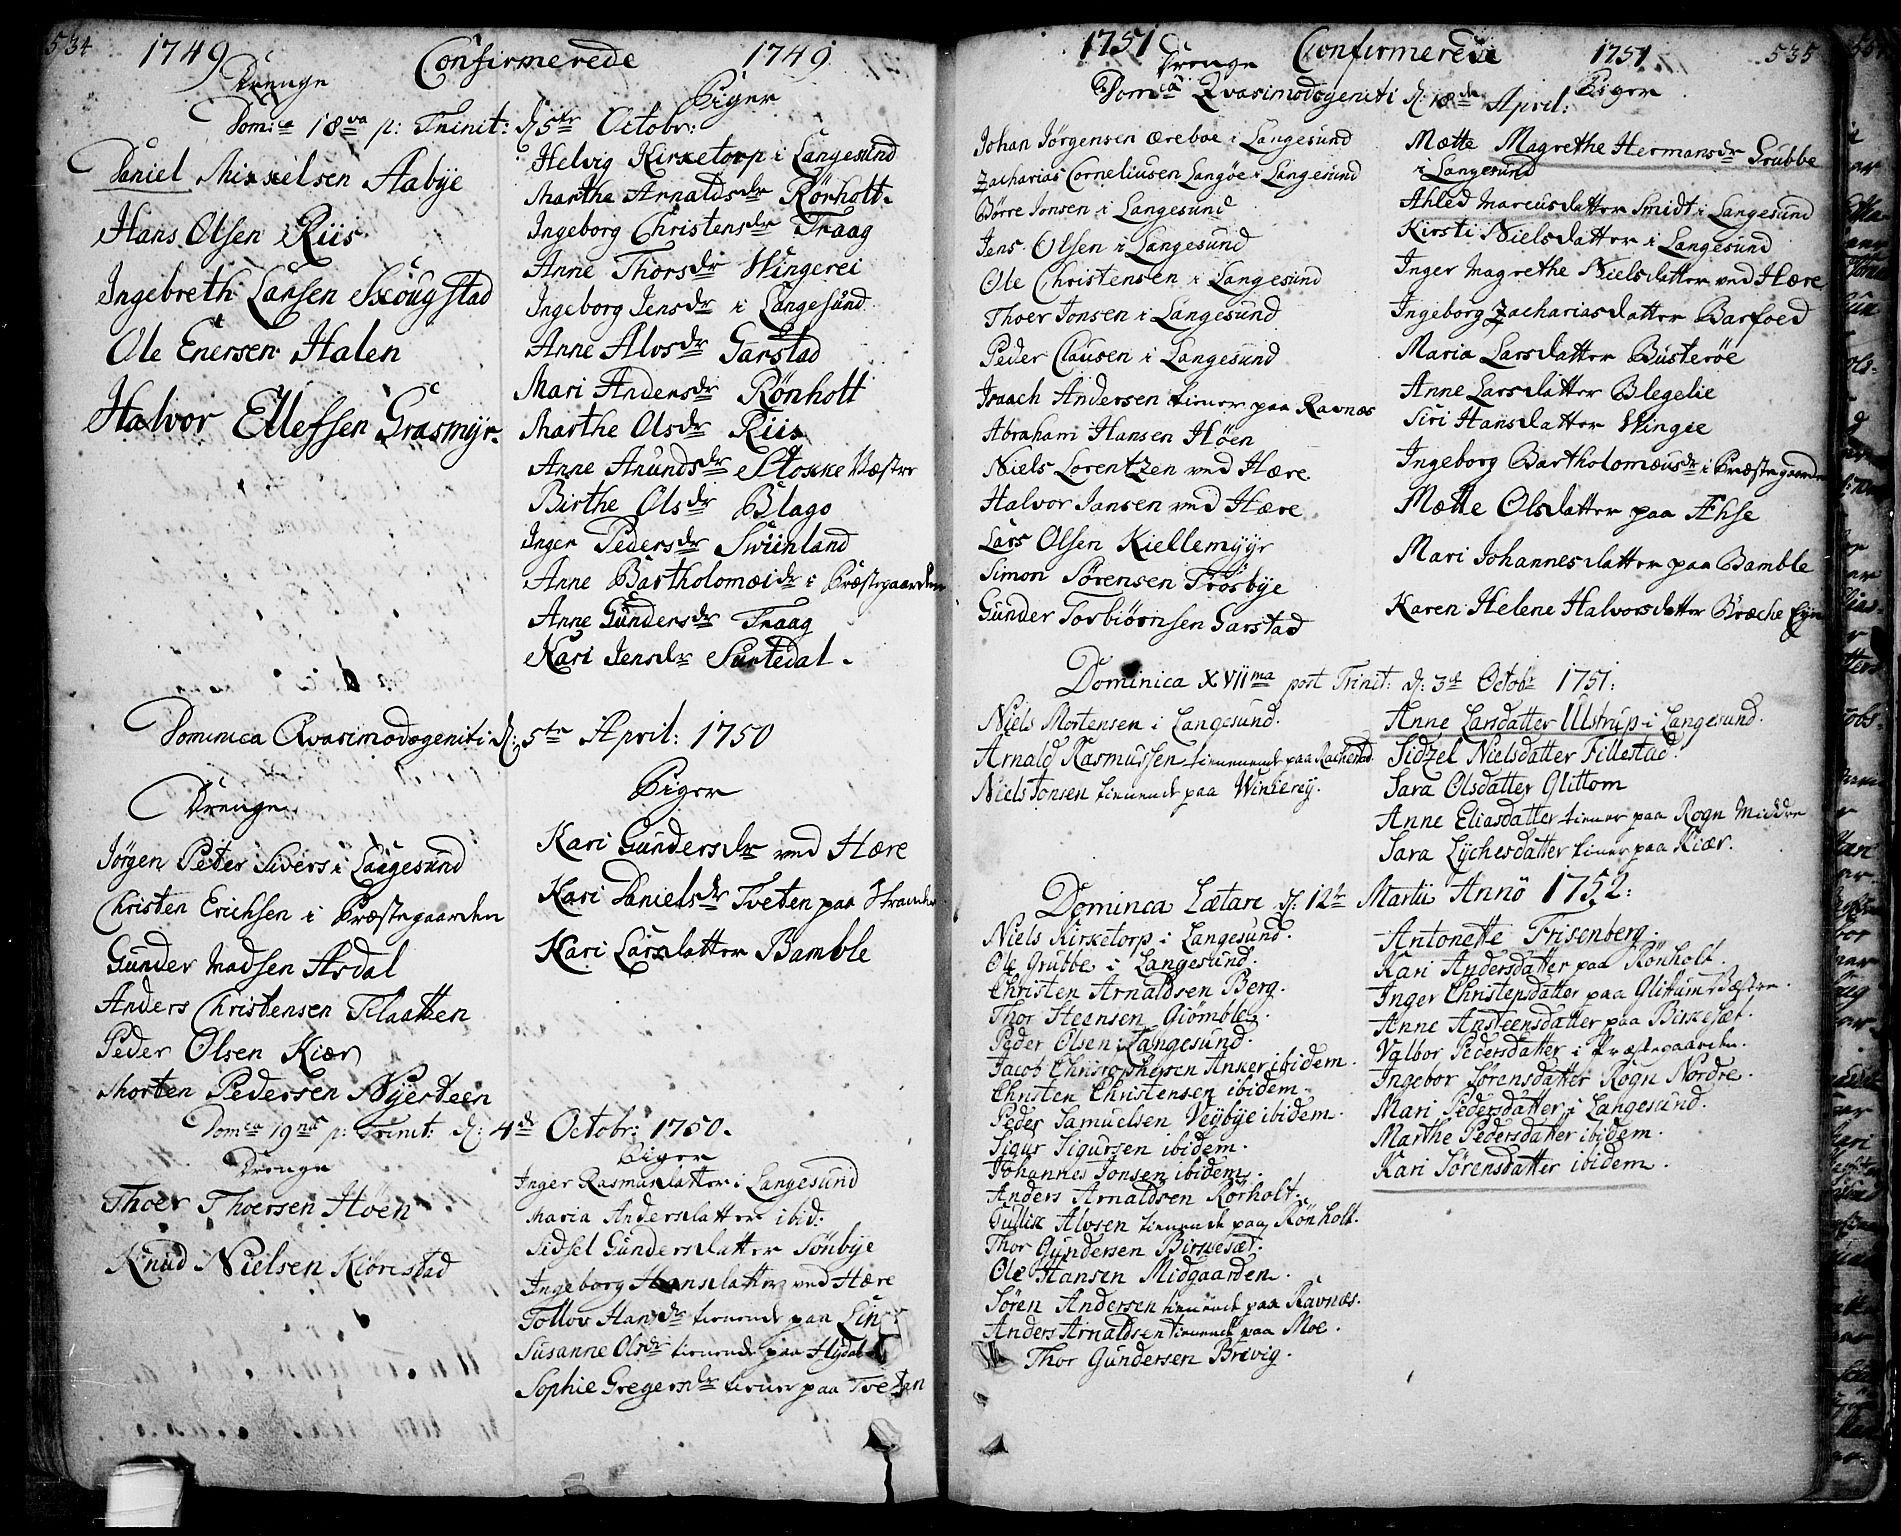 534 1749 Confirmerede 1749
Drenge Piger
Domca 18va p: Trinit: d 5te Octobr:
Daniel Mikkelsen Aabye
Hans Olsen Riis
Ingebreth Larsen Skougstad
Ole Enersen Halen
Halvor Ellefsen Grasmyr.
Helvig Kirketorp i Langesund
Marthe Arnaldsdr Rørholt.
Ingeborg Christensdr Traag
Anne Thorsdr Wingerei
Ingeborg Jensdr i Langesund
Anne Alvsdr Garstad
Mari Andersdr Rønholt
Marthe Olsdr Riis
Anne Anundsdr Stokke Væstre
Birthe Olsdr Blago
Inger Pedersdr Swiinland
Anne Bartholomæidr i Præstegaarden
Anne Gundersdr Traag
Kari Jensdr Surtedal.
Dominica Qvasimodogeniti d: 5te April: 1750
Drenge
Jørgen Peter Siders i Langesund
Christen Erichsen i Præstegaarden
Gunder Madsen Asdal
Anders Christensen Flaatten
Peder Olsen Kiær
Morten Pedersen Nyesteen
Piger
Kari Gundersdr ved Hære
Kari Danielsdr Tveten paa Stranden
Kari Larsdatter Bamble
Domca 19na p: Trinit: d: 4de Octobr: 1750.
Drenge
Thoer Thoersen Høen
Knud Nielsen Kiørestad
Piger
Inger Rasmusdatter i Langesund
Maria Andersdatter ibid:
Sidsel Gundersdatter Sønbye
Ingeborg Hansdatter ved Hære
Tollov Hansdr tienende paa
Susanne Olsdr tienende paa Hydal
Sophie Gregersdr tiener paa Tveten
1751 Confirmerede 1751 535
Drenge Piger
Domca Qvasimodogeniti d: 18de April:
Johan Jørgensen Æreboe i Langesund
Zacharias Corneliusen Langøe i Langesund
Børre Jonsen i Langesund
Jens Olsen i Langesund
Ole Christensen i Langesund
Thoer Jonsen i Langesund
Peder Clausen i Langesund
Isaach Andersen tiener paa Ravnæs
Abraham Hansen Høen
Niels Lorentzen ved Hære
Halvor Jansen ved Hære
Lars Olsen Kiellemyyr
Simon Sørensen Trosbye
Gunder Torbiørnsen Garstad
Mætte Magrethe Hermansdr Grubbe
i Langesund
Ahled Marcusdatter Smidt i Langesund
Kirsti Nielsdatter i Langesund
Inger Magrethe Nielsdatter ved Hære
Ingeborg Zachariasdatter Barfoed
Maria Larsdatter Busterøe
Anne Larsdatter Blegelie
Siri Hansdatter Wingie
Ingeborg Bartholomæusdr i Præstegaarden
Mætte Olsdatter paa Æhse
Mari Johannesdatter paa Bamble
Karen Helene Halvorsdatter Bræche
Dominica XVIIma post Trinit: d: 3de Octobr 1751:
Niels Mortensen i Langesund.
Arnald Rasmussen tienenende paa Rachestad.
Niels Jonsen tienende paa Winterey.
Anne Larsdatter Ulstrup i Langesund.
Sidzel Nielsdatter Fillestad.
Sara Olsdatter Glittom
Anne Eliasdatter tiener paa Rogn Middre
Sara Lychesdatter tiener paa Kiær.
Dominca Lætare d: 12te Martii Annô 1752:
Niels Kirketorp i Langesund.
Ole Grubbe i Langesund.
Christen Arnaldsen Berg.
Thor Steensen Giømble.
Peder Olsen Langesund.
Jacob Christophersen Anker ibidem.
Christen Christensen ibidem.
Peder Samuelsen Veybye ibidem.
Sigur Sigursen ibidem.
Johannes Jonsen ibidem.
Anders Arnaldsen Rørholt.
Gullik Alvsen tienende paa Rönholt.
Thor Gundersen Birkesæt.
Ole Hansen Midgaarden.
Søren Andersen tienende paa Ravnæs.
Anders Arnaldsen tienende paa Moe.
Thor Gundersen Brevig.
Antonette Frisenberg.
Kari Andersdatter paa Rönholt.
Inger Christensdatter paa Glittum Væstre.
Anne Ansteensdatter paa Birkesæt.
Valbor Pedersdatter i Præstegaarden.
Ingebor Sørensdatter Rogn Nordre.
Mari Pedersdatter i Langesund.
Marthe Pedersdatter ibidem.
Kari Sørensdatter ibidem.